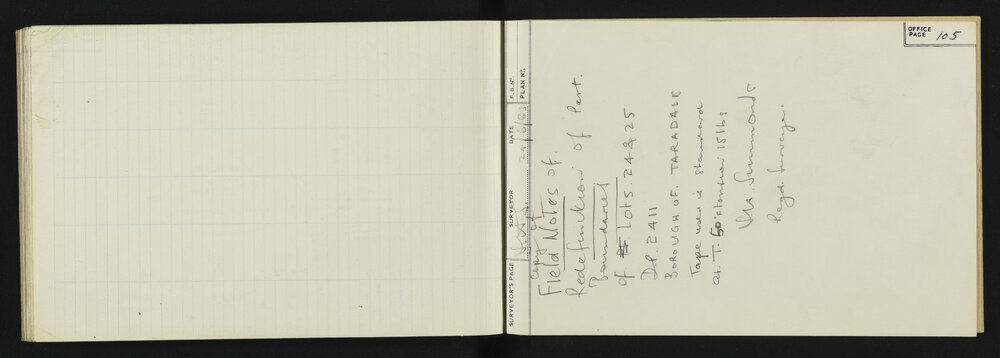 OFFICE PAGE 105
SURVEYOR'S PAGE SURVEYOR DATE 24/6/63 F.B. Nº. PLAN Nº.
Copy of
Field Notes of.
Redefinition of Part.
Boundaries
of Lots. 24 & 25
D.P. 2411
BOROUGH OF. TARADALE
Tape used is Standard
at. T. 60° tension 15 lbs
Simmonds
Regd. Surveyor.